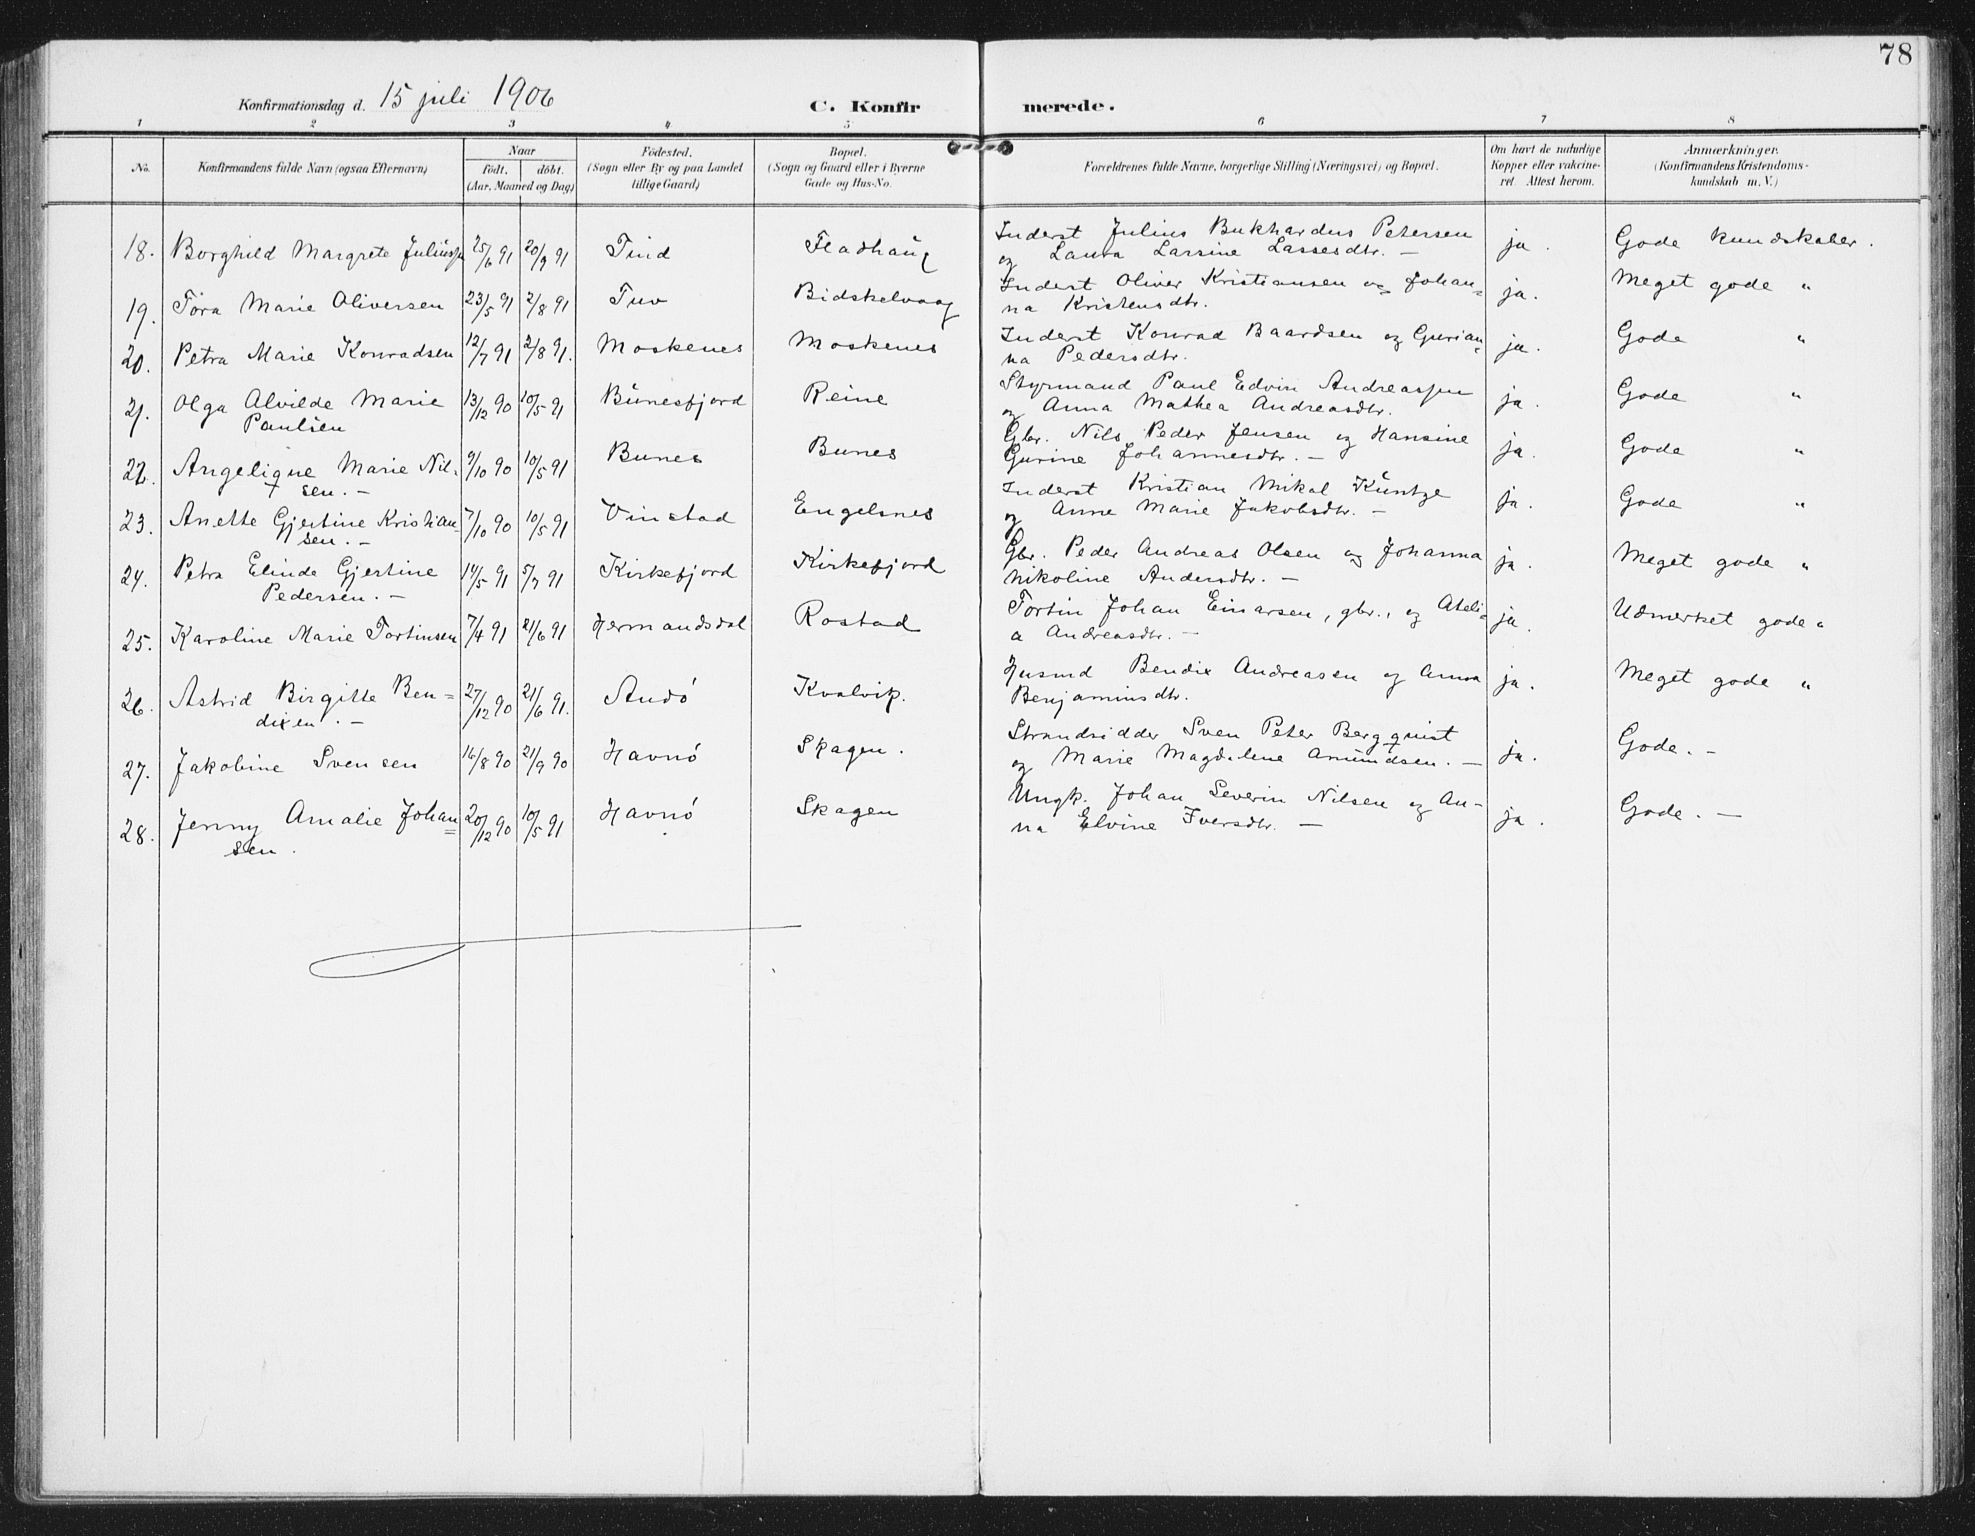 78
Konfirmationsdag d. 15 juli 1906
C. Konfirmerede.
1 2 3 4 5 6 7 8
No. | Konfirmandens fulde Navn (ogsaa Efternavn) | Naar födt. döbt. (Aar, Maaned og Dag) | Födested. (Sogn eller By og paa Landet tillige Gaard) | Bopæl. (Sogn og Gaard eller i Byerne Gade og Hus-No. | Forældrenes fulde Navne, borgerlige Stilling (Næringsvei) og Bopæl. | Om havt de naturlige Kopper eller vakcineret. Attest herom. | Anmærkninger. (Konfirmandens Kristendomskundskab m. V.)
18. Borghild Margrete Juliussen 25/6 91 20/9 91 Tind Fladhaug Inderst Julius Bukhardus Petersen og Laura Larsine Lassesdtr. — ja. Gode kundskaber.
19. Tora Marie Oliversen 23/5 91 2/8 91 Tuv Bidskelvaag Inderst Oliver Kristiansen og Johanna Kristensdtr. ja. Meget gode "
20. Petra Marie Konradsen 12/7 91 2/8 91. Moskenes Moskenes Inderst Konrad Baardsen og Gurianna Pedersdtr. ja. Gode "
21. Olga Alvilde Marie Paulsen 13/12 90 10/5 91 Bunesfjord Reine Styrmand Paul Edvin Andreassen og Anna Mathea Andreasdtr. ja. Gode "
22. Angelique Marie Nilsen. — 9/10 90 10/5 91 Bunes Bunes Gbr. Nils Peder Jensen og Hansine Gurine Johannesdtr. — ja. Gode "
23. Anette Gjertine Kristiansen. — 7/10 90 10/5 91 Vinstad Engelsnes Inderst Kristian Mikal Küntze og Anne Marie Jakobsdtr. — ja. Gode "
24. Petra Elinde Gjertine Pedersen. — 14/5 91 5/7 91 Kirkefjord Kirkefjord Gbr. Peder Andreas Olsen og Johanna Nikoline Andersdtr. — ja. Meget gode "
25. Karoline Marie Tortinsen 7/4 91 21/6 91 Hermandsdal Rostad Tortin Johan Einarsen, gbr., og Atelia Andreasdtr. — ja. Udmerket gode "
26. Astrid Birgitte Bendixen. — 27/12 90 21/6 91. Andö Kvalvik. Husmd Bendix Andreasen og Anna Benjaminsdtr. ja. Meget gode "
27. Jakobine Svensen 16/8 90 21/9 90 Havnö Skagen. Strandsidder Sven Peter Bergquist og Marie Magdalene Amundsen. — ja. Gode. —
28. Jenny Amalie Johansen. 20/12 90 10/5 91 Havnö Skagen Ungk. Johan Severin Nilsen og Anna Elvine Iversdtr. — ja. Gode. —